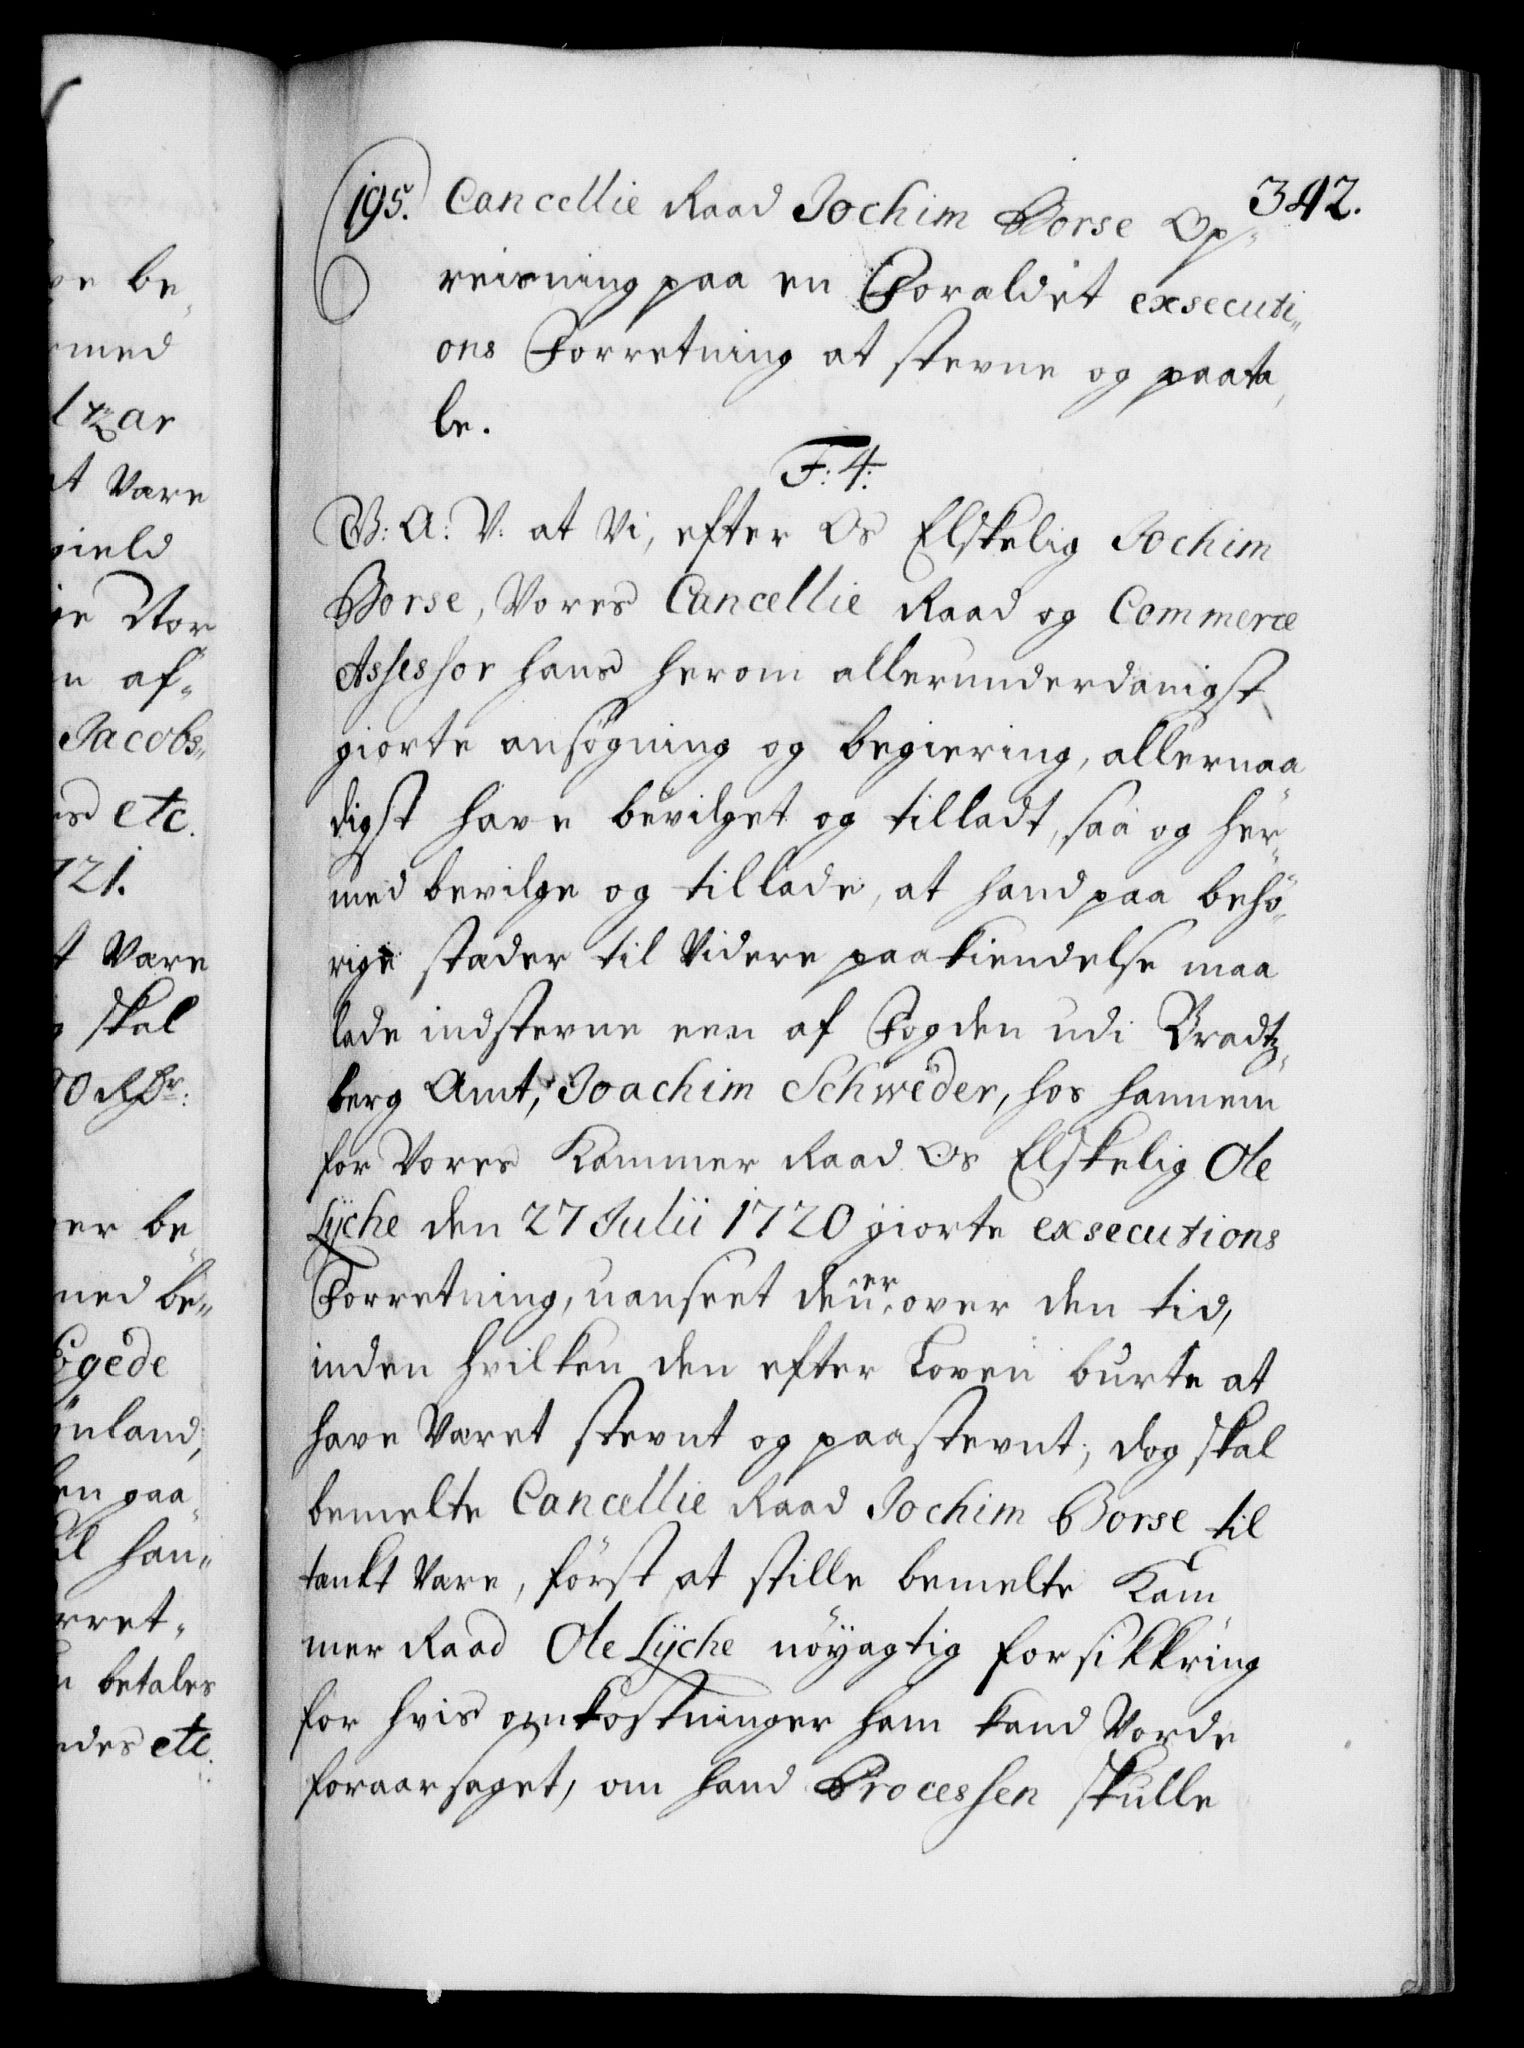 342.
195. Cancellie Raad Jochim Borse Op-
reisning paa en Foraldet exsecuti-
ons Forretning at stevne og paata,
le.
F: 4:
V: A: V: at Vi, efter Os Elskelig Jochim
Borse, Vores Cancellie Raad og Commerce
Assessor hans herom allerunderdanigst
giorte ansøgning og begiering, allernaa
digst have bevilget og tilladt, saa og her-
med bevilge og tillade, at hand paa behö-
rige stæder til Videre paakiendelse maa
lade indstevne een af Fogden udi Bradtz-
berg Amt, Joachim Schwèder, hos hannem
for Vores Kammer Raad Os Elskelig Ole
Lÿche den 27 Julii 1720 giorte exsecutions
Forretning, uanseet den er over den tid,
inden hvilken den efter Loven burte at
have Været stevnt og paastevnt, dog skal
bemelte Cancellie Raad Jochim Borse til
tænkt Være, först at stille bemelte Kam
mer Raad Ole Lÿche nöyagtig forsikkring
for hvis omkostninger ham kand Vorde
foraarsaget, om hand Processen skulle
be-
med
ltzar
Være
gield
Nor
af-
Jacobs-
etc.
721.
Være
skal
0 Rdr:
er be-
med be-
Egede
ønland,
paa-
han-
rret-
betales
etc.